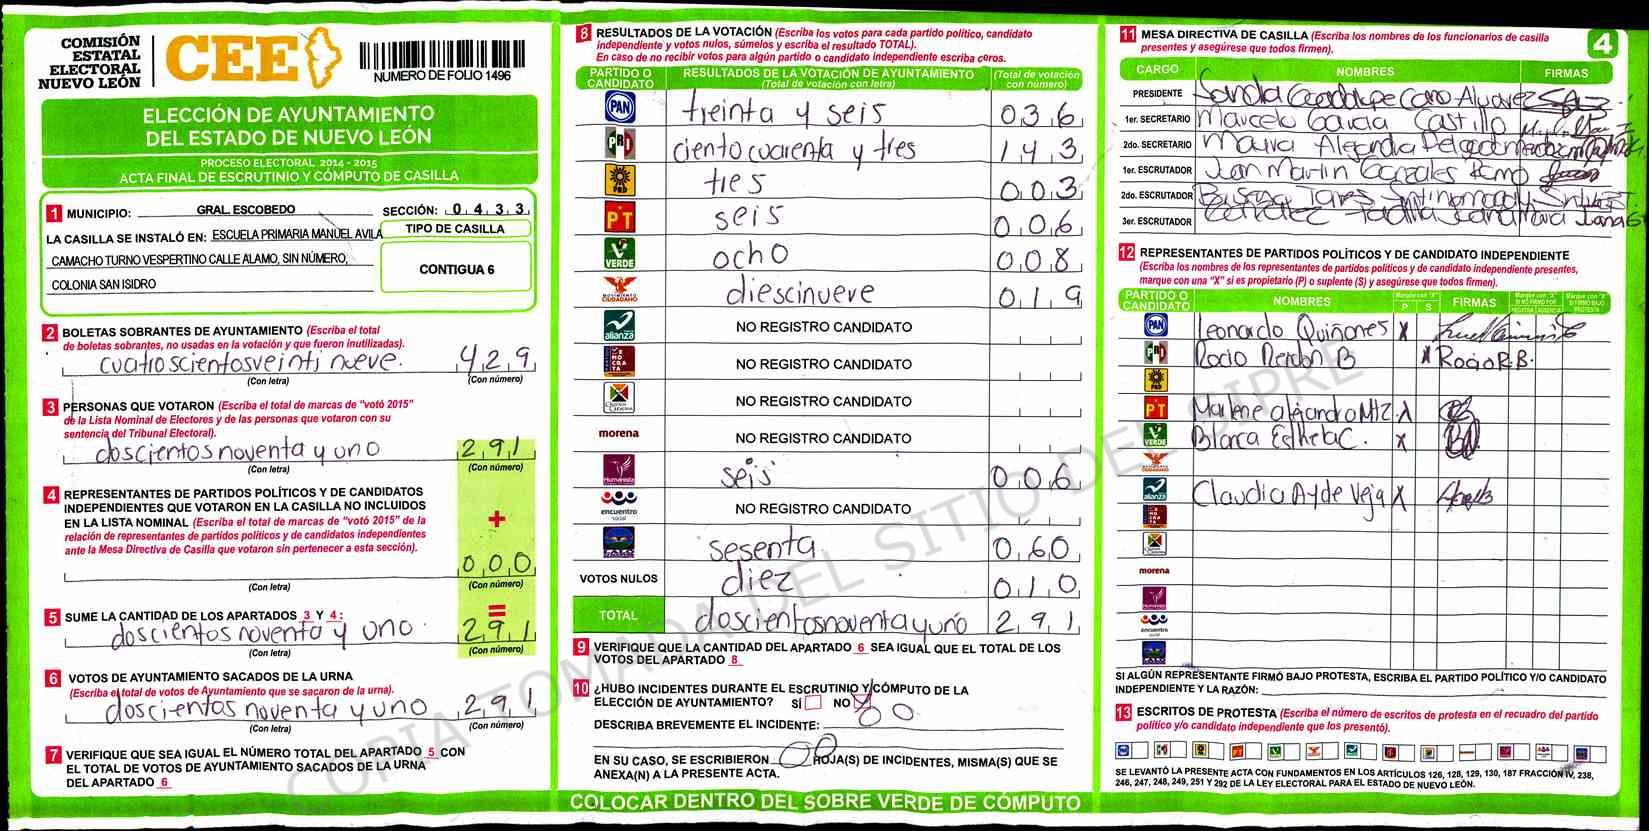 COMISIÓN
ESTATAL
ELECTORAL
NUEVO LEÓN
CEE
NUMERO DE FOLIO 1496
ELECCIÓN DE AYUNTAMIENTO
DEL ESTADO DE NUEVO LEÓN
PROCESO ELECTORAL 2014 - 2015
ACTA FINAL DE ESCRUTINIO Y CÓMPUTO DE CASILLA
1 MUNICIPIO: GRAL. ESCOBEDO SECCIÓN: 0 4 3 3
LA CASILLA SE INSTALÓ EN: ESCUELA PRIMARIA MANUEL AVILA
CAMACHO TURNO VESPERTINO CALLE ALAMO, SIN NÚMERO,
COLONIA SAN ISIDRO
TIPO DE CASILLA
CONTIGUA 6
2 BOLETAS SOBRANTES DE AYUNTAMIENTO (Escriba el total
de boletas sobrantes, no usadas en la votación y que fueron inutilizadas).
cuatroscientosveinti nueve. 4 2 9
(Con letra) (Con número)
3 PERSONAS QUE VOTARON (Escriba el total de marcas de "votó 2015"
de la Lista Nominal de Electores y de las personas que votaron con su
sentencia del Tribunal Electoral).
doscientos noventa y uno 2 9 1
(Con letra) (Con número)
4 REPRESENTANTES DE PARTIDOS POLÍTICOS Y DE CANDIDATOS
INDEPENDIENTES QUE VOTARON EN LA CASILLA NO INCLUIDOS
EN LA LISTA NOMINAL (Escriba el total de marcas de "votó 2015" de la
relación de representantes de partidos políticos y de candidatos independientes
ante la Mesa Directiva de Casilla que votaron sin pertenecer a esta sección).
+
0 0 0
(Con letra) (Con número)
5 SUME LA CANTIDAD DE LOS APARTADOS 3 Y 4: =
doscientos noventa y uno. 2 9 1
(Con letra) (Con número)
6 VOTOS DE AYUNTAMIENTO SACADOS DE LA URNA
(Escriba el total de votos de Ayuntamiento que se sacaron de la urna).
doscientos noventa y uno 2 9 1
(Con letra) (Con número)
7 VERIFIQUE QUE SEA IGUAL EL NÚMERO TOTAL DEL APARTADO 5 CON
EL TOTAL DE VOTOS DE AYUNTAMIENTO SACADOS DE LA URNA
DEL APARTADO 6
8 RESULTADOS DE LA VOTACIÓN (Escriba los votos para cada partido político, candidato
independiente y votos nulos, súmelos y escriba el resultado TOTAL).
En caso de no recibir votos para algún partido o candidato independiente escriba ceros.
PARTIDO O CANDIDATO RESULTADOS DE LA VOTACIÓN DE AYUNTAMIENTO (Total de votación con letra) (Total de votación con número)
PAN treinta y seis 0 3 6
PRD ciento cuarenta y tres 1 4 3
PRD tres 0 0 3
PT seis 0 0 6
VERDE ocho 0 0 8
MOVIMIENTO CIUDADANO diescinueve 0 1 9
alianza NO REGISTRO CANDIDATO
DEMOCRATA NO REGISTRO CANDIDATO
NO REGISTRO CANDIDATO
morena NO REGISTRO CANDIDATO
Humanista seis 0 0 6
encuentro social NO REGISTRO CANDIDATO
sesenta 0 6 0
VOTOS NULOS diez 0 1 0
TOTAL doscientosnoventayuno 2 9 1
9 VERIFIQUE QUE LA CANTIDAD DEL APARTADO 6 SEA IGUAL QUE EL TOTAL DE LOS
VOTOS DEL APARTADO 8
10 ¿HUBO INCIDENTES DURANTE EL ESCRUTINIO Y CÓMPUTO DE LA
ELECCIÓN DE AYUNTAMIENTO? SÍ NO
DESCRIBA BREVEMENTE EL INCIDENTE: 0 0
EN SU CASO, SE ESCRIBIERON 00 HOJA(S) DE INCIDENTES, MISMA(S) QUE SE
ANEXA(N) A LA PRESENTE ACTA.
COLOCAR DENTRO DEL SOBRE VERDE DE CÓMPUTO
11 MESA DIRECTIVA DE CASILLA (Escriba los nombres de los funcionarios de casilla
presentes y asegúrese que todos firmen).
4
CARGO NOMBRES FIRMAS
PRESIDENTE Sandra Guadalupe Cano Alvarez
1er. SECRETARIO Marcelo Garcia Castillo
2do. SECRETARIO Maura Alejandra
1er. ESCRUTADOR Juan Martin Gonzales
2do. ESCRUTADOR
3er. ESCRUTADOR
12 REPRESENTANTES DE PARTIDOS POLÍTICOS Y DE CANDIDATO INDEPENDIENTE
(Escriba los nombres de los representantes de partidos políticos y de candidato independiente presentes,
marque con una "X" si es propietario (P) o suplente (S) y asegúrese que todos firmen).
PARTIDO O CANDIDATO NOMBRES Marque con "X" P S FIRMAS Marque con "X" SI NO FIRMÓ POR NEGATIVA AUSENCIA Marque con "X" SI FIRMÓ BAJO PROTESTA
PAN Leonardo Quiñones X
Rocio Rendon B X Rocio R.B.
PRD
PT Marlene alejandra Mtz. X
VERDE Blanca Esthela C. X
alianza Claudia Ayde Vega X
morena
Humanista
encuentro social
SI ALGÚN REPRESENTANTE FIRMÓ BAJO PROTESTA, ESCRIBA EL PARTIDO POLÍTICO Y/O CANDIDATO
INDEPENDIENTE Y LA RAZÓN:
13 ESCRITOS DE PROTESTA (Escriba el número de escritos de protesta en el recuadro del partido
político y/o candidato independiente que los presentó).
SE LEVANTÓ LA PRESENTE ACTA CON FUNDAMENTOS EN LOS ARTÍCULOS 126, 128, 129, 130, 187 FRACCIÓN IV, 238,
246, 247, 248, 249, 251 Y 292 DE LA LEY ELECTORAL PARA EL ESTADO DE NUEVO LEÓN.
COPIA TOMADA DEL SITIO DEL SIPRE